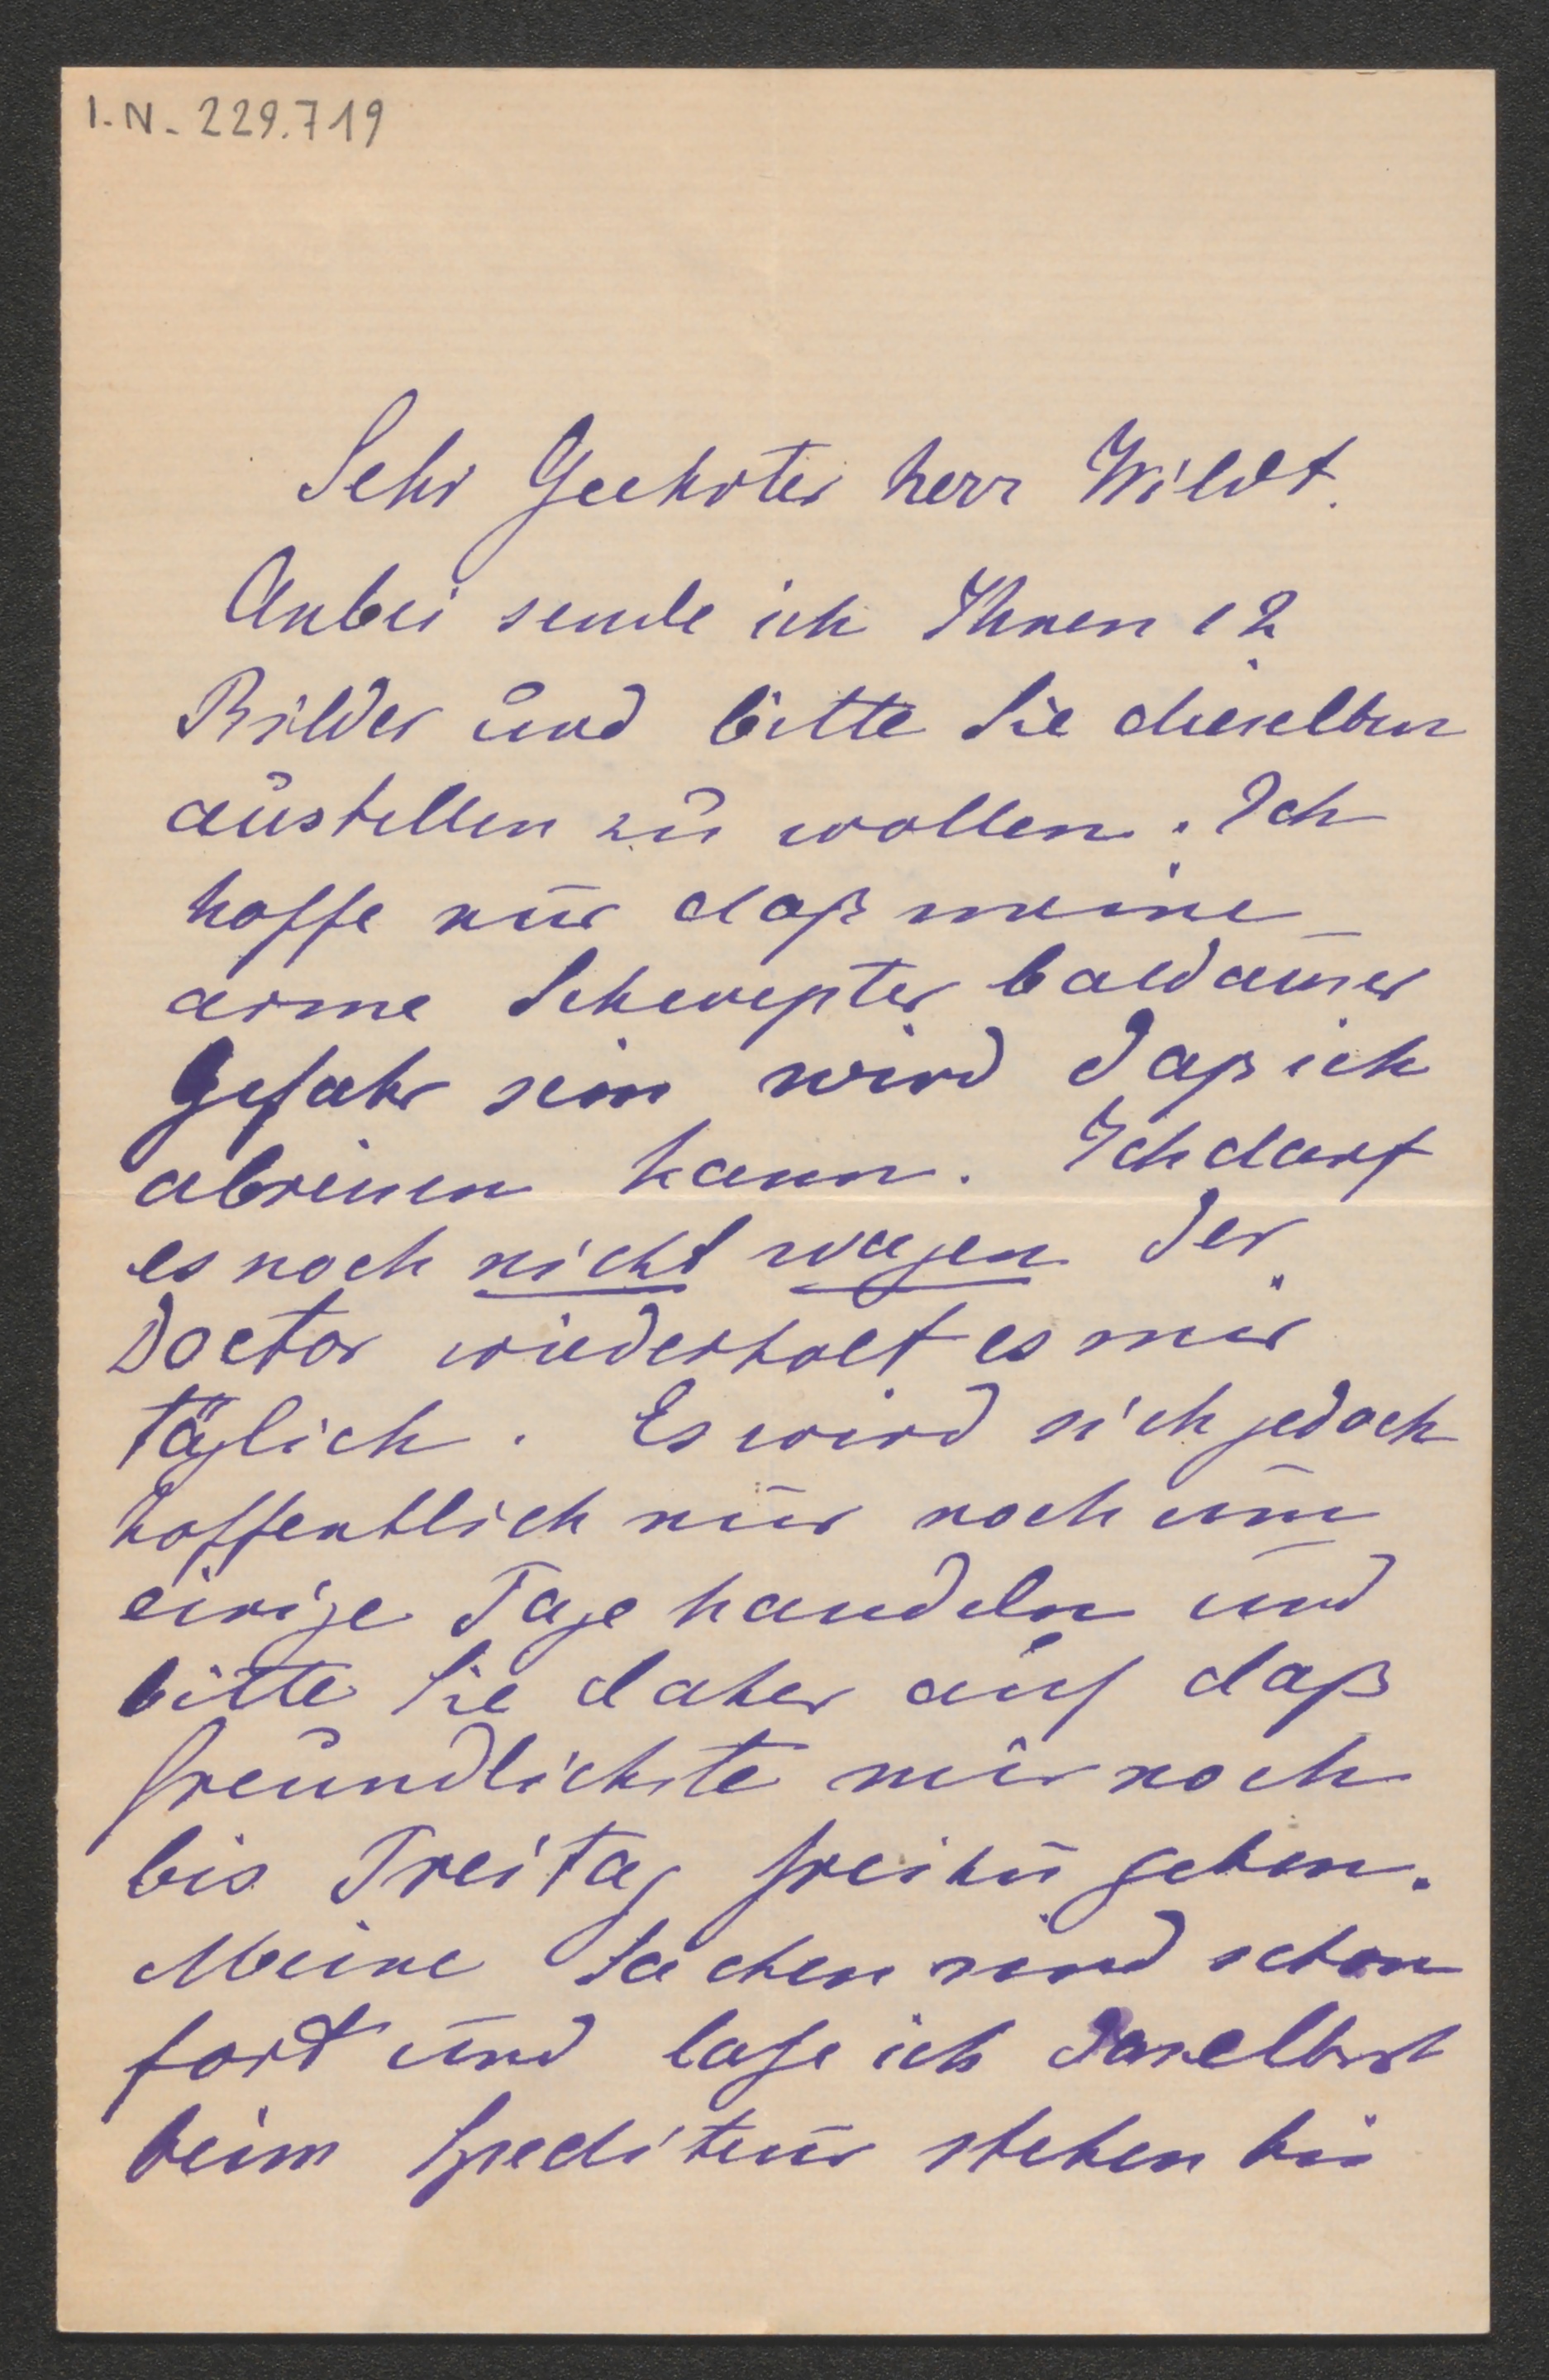 I.N. 229.719
Sehr Geehrter Herr Wildt.
Anbei sende ich Ihnen 12
Bilder und bitte Sie dieselben
austellen zu wollen. Ich
hoffe nur daß meine
arme Schwester bald ausser
Gefahr sein wird daß ich
abreisen kann. Ich darf
es noch nicht wagen der
Doctor wiederholt es mir
täglich. Es wird sich jedoch
hoffentlich nur noch um
einige Tage handeln und
bitte Sie daher auf daß
freundlichste mir noch
bis Freitag frei zu geben.
Meine Sachen sind schon
fort und laße ich daselbst
beim Spediteur stehen bis